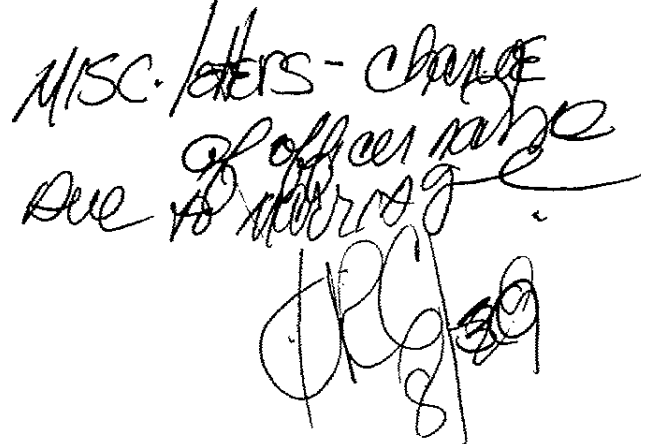 MISC. letters - change
of officer name
Due to marriage.
8